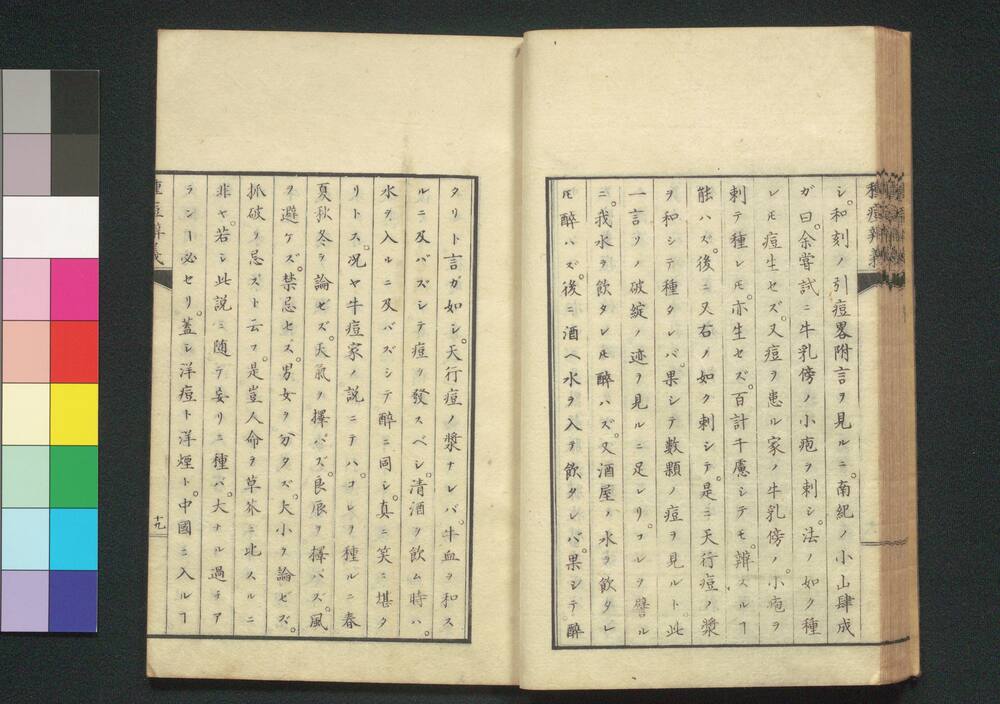 種痘辨義
シ。和刻ノ引痘畧附言ヲ見ルニ。南紀ノ小山肆成
ガ曰。余嘗試ニ牛乳傍ノ小疱ヲ刺シ。法ノ如ク種
レ𪜈痘生セズ。又痘ヲ患ル家ノ牛乳傍ノ。小疱ヲ
刺テ種レ𪜈。亦生セズ。百計千慮シテモ。辨スルヿ
能ハズ。後ニ又右ノ如ク刺シテ。是ニ天行痘ノ漿
ヲ和シテ種タレバ。果シテ數顆ノ痘ヲ見ルト。此
一言ソノ破綻ノ迹ヲ見ルニ足レリ。コレヲ譬ル
ニ。我水ヲ飲タレ𪜈醉ハズ。又酒屋ノ水ヲ飲タレ
𪜈醉ハズ。後ニ酒ヘ水ヲ入テ飲タレバ。果シテ醉
タリト言ガ如シ。天行痘ノ漿ナレバ。牛血ヲ和ス
ルニ及バズシテ痘ヲ發スベシ。清酒ヲ飲ム時ハ。
水ヲ入ルニ及バズシテ醉ニ同シ。真ニ笑ニ堪タ
リトス。况ヤ牛痘家ノ説ニテハ。コレヲ種ルニ春
夏秋冬ヲ論ゼズ。天氣ヲ擇バズ。良辰ヲ擇バズ。風
ヲ避ケズ。禁忌セズ。男女ヲ分タズ。大小ヲ論ゼズ。
抓破ヲ忌ズト云フ。是豈人命ヲ草芥ニ比スルニ
非ヤ。若シ此説ニ随テ妄リニ種バ。大ナル過チア
ランヿ必セリ。蓋シ洋痘ト洋煙ト。中國ニ入ルヿ
種痘辨義
十九